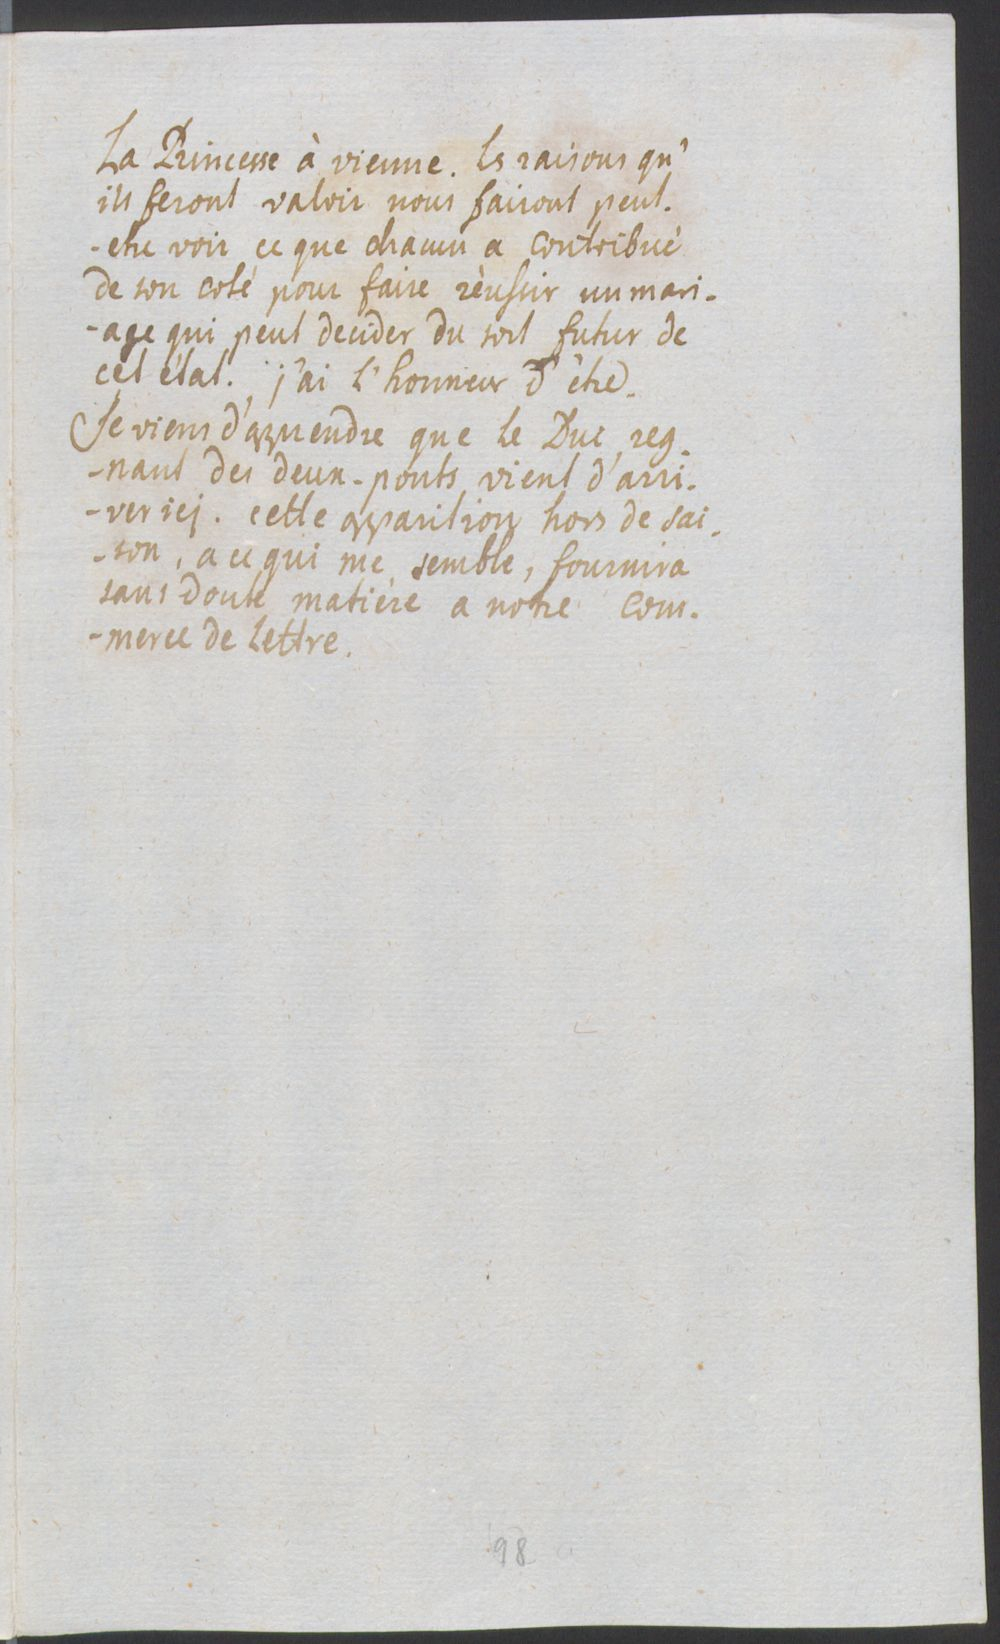 La Princesse à vienne. les raisons qu'
ils feront valoir nous fairont peut.
-etre voir ce que chacun a contribué
de son coté pour faire réussir un mari-
-age qui peut decider du sort futur de
cet état. j'ai l'honneur d'être.
Je viens d'apprendre que le Duc reg-
-nant des deux-ponts vient d'arri-
-ver icj. cette apparition hors de sai-
-son, a ce qui me semble, fournira
sans doute matière a notre com-
-merce de lettre.
98